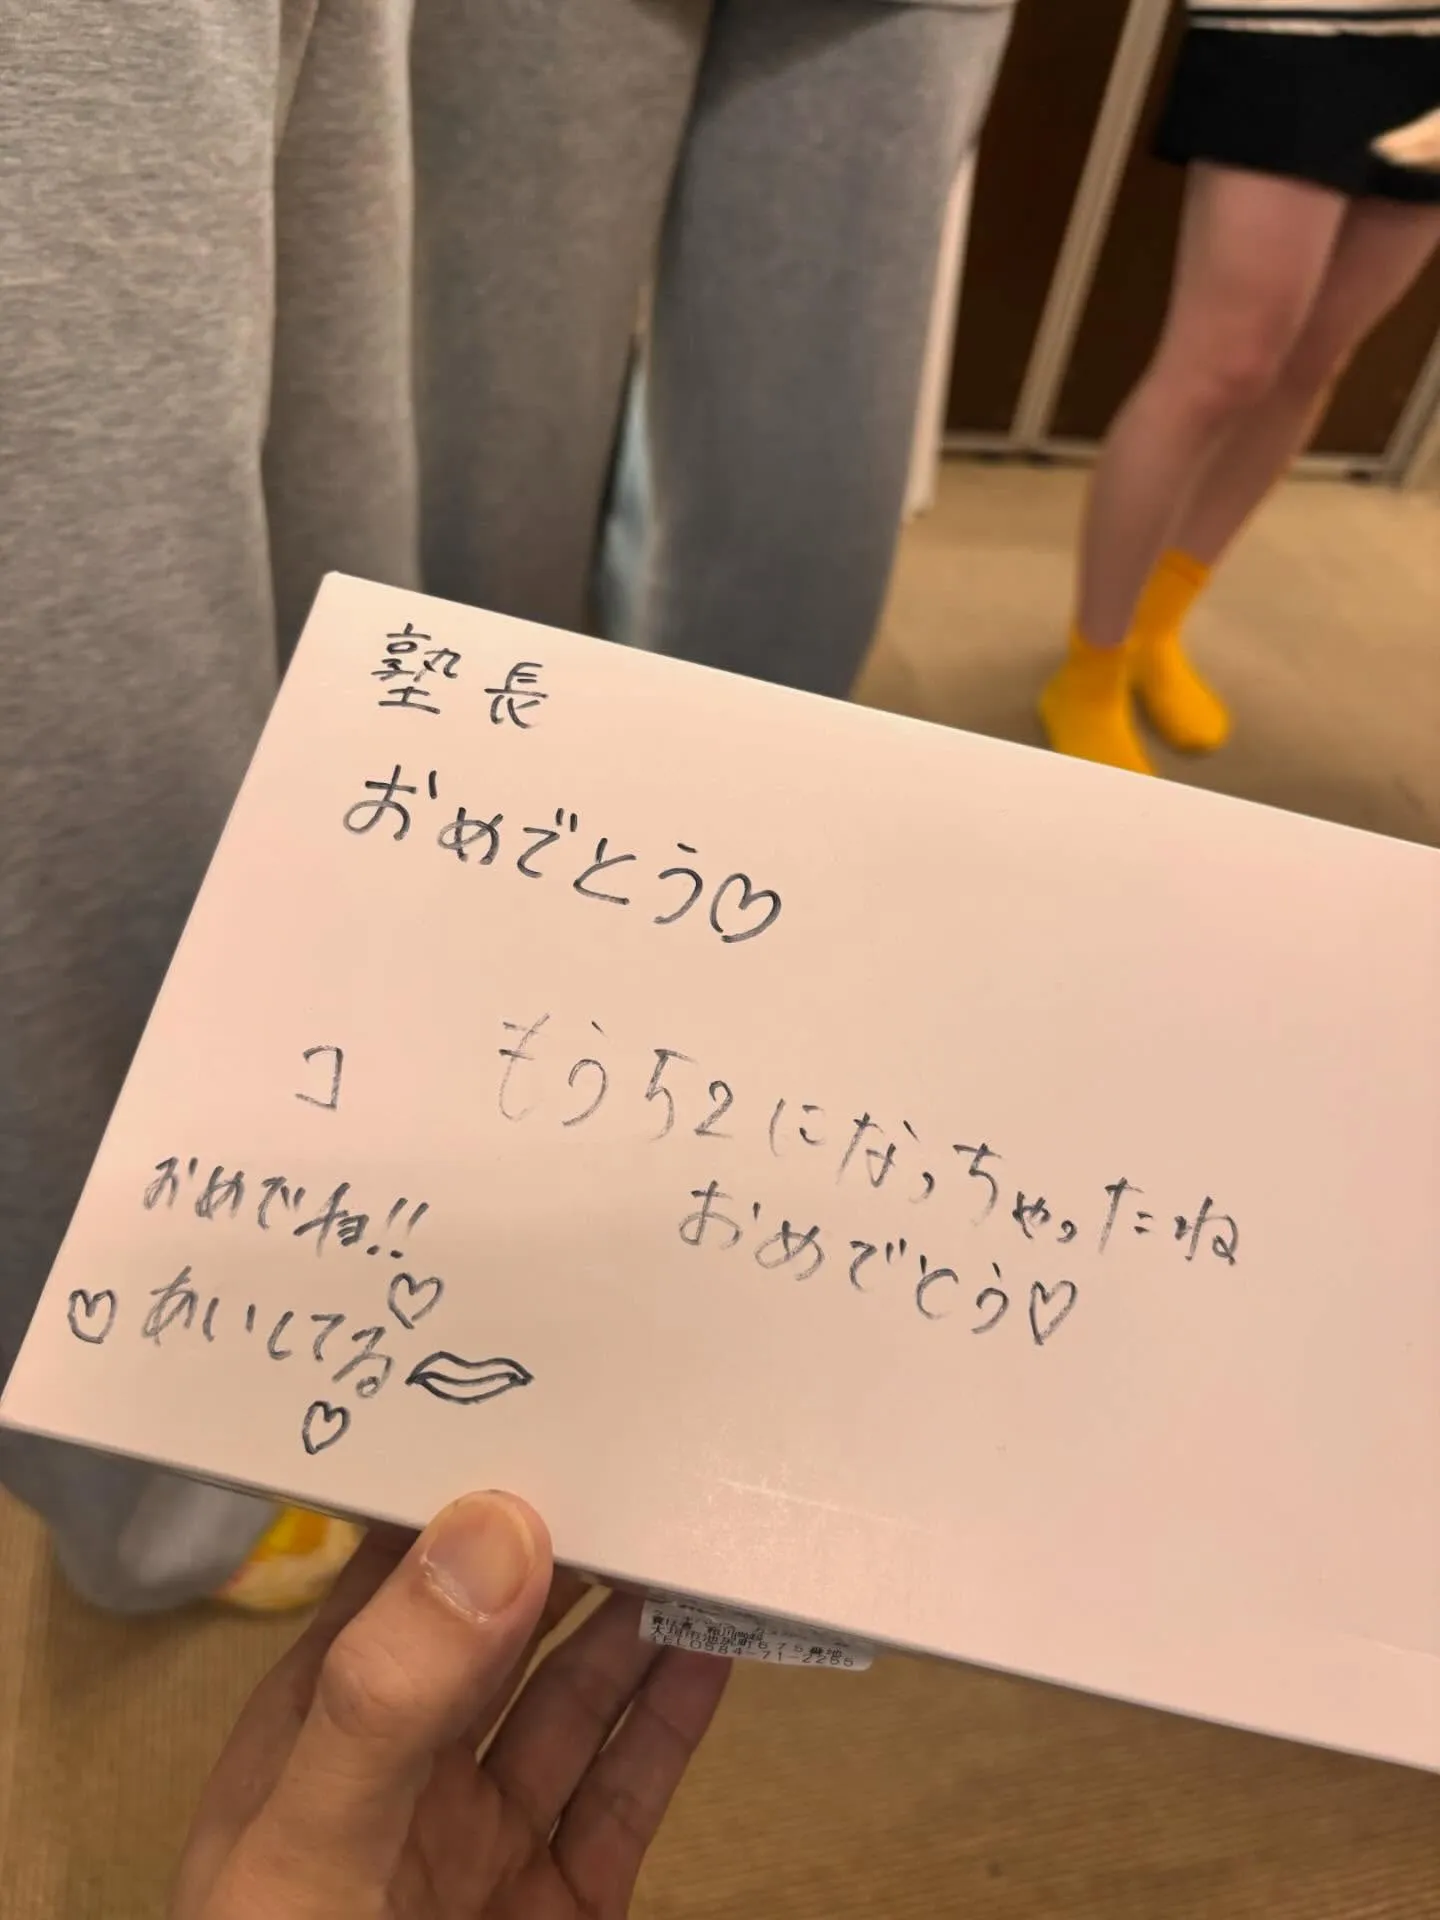 塾長
おめでとう♡
もう52になっちゃったね
おめでとう♡
コ
おめでね!!
♡あいしてる♡
♡
大垣市池尻町675番地
TEL0584-71-2255